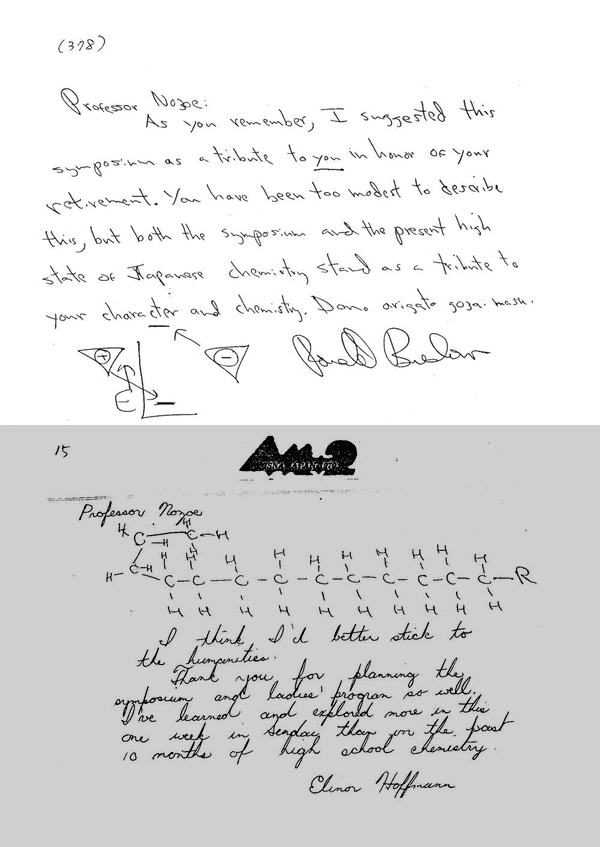 (378)
Professor Nozoe:
As you remember, I suggested this
symposium as a tribute to you in honor of your
retirement. You have been too modest to describe
this, but both the symposium and the present high
state of Japanese chemistry stand as a tribute to
your character and chemistry. Domo arigato gozai mash.
+
−
Ronald Breslow
E
15
Professor Nozoe
H H
C – H C – H
H – C – H H H H H H H H H H H
C – C – C – C – C – C – C – C – C – C – R
H H H H H H H H H H
I think I'd better stick to
the humanities.
Thank you for planning the
symposium and ladies' program so well.
I've learned and explored more in this
one week in Sendai than in the past
10 months of high school chemistry.
Elinor Hoffmann